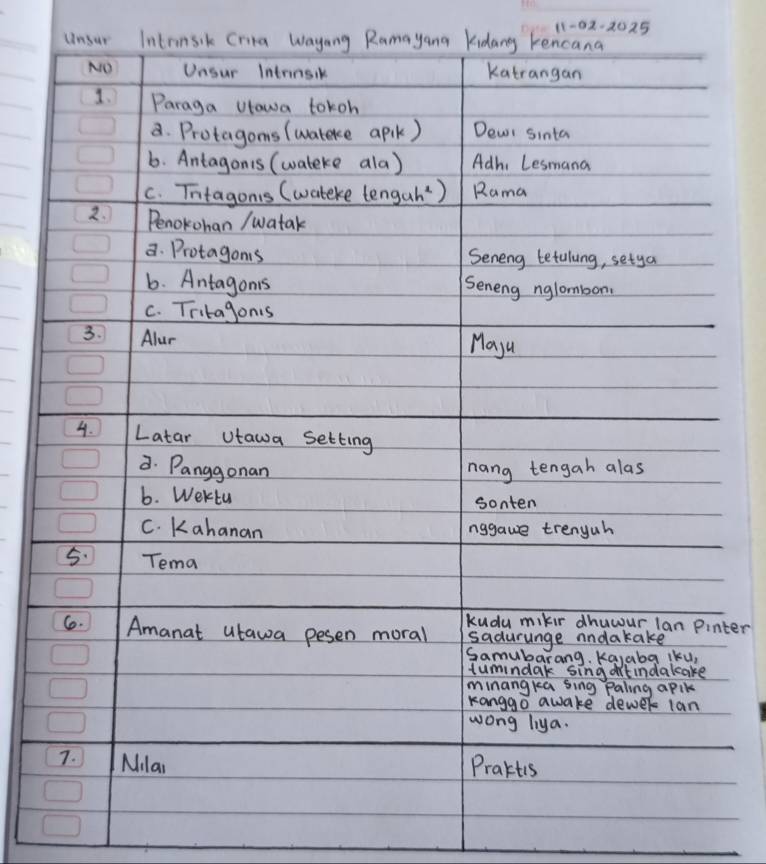 11-02-2025
Unsur Intrinsik Crita Wayang Ramayana Kidang Kencana
No Unsur Intrinsik Katrangan
1. Paraga Utawa tokoh
a. Protagonis (wateke apik) Dewi Sinta
b. Antagonis (wateke ala) Adhi Lesmana
c. Tritagonis (wateke tengah²) Rama
2. Penokohan / watak
a. Protagonis Seneng tetulung, setya
b. Antagonis Seneng nglomboni
c. Tritagonis
3. Alur Maju
4. Latar Utawa Setting
a. Panggonan nang tengah alas
b. Wektu sonten
c. Kahanan nggawe trenyuh
5. Tema
6. Amanat utawa pesen moral kudu mikir dhuwur lan Pinter
sadurunge nndakake
samubarang. Kajaba iku,
tumindak sing ditindakake
minangka sing paling apik
kanggo awake dewek lan
wong liya.
7. Nilai Praktis